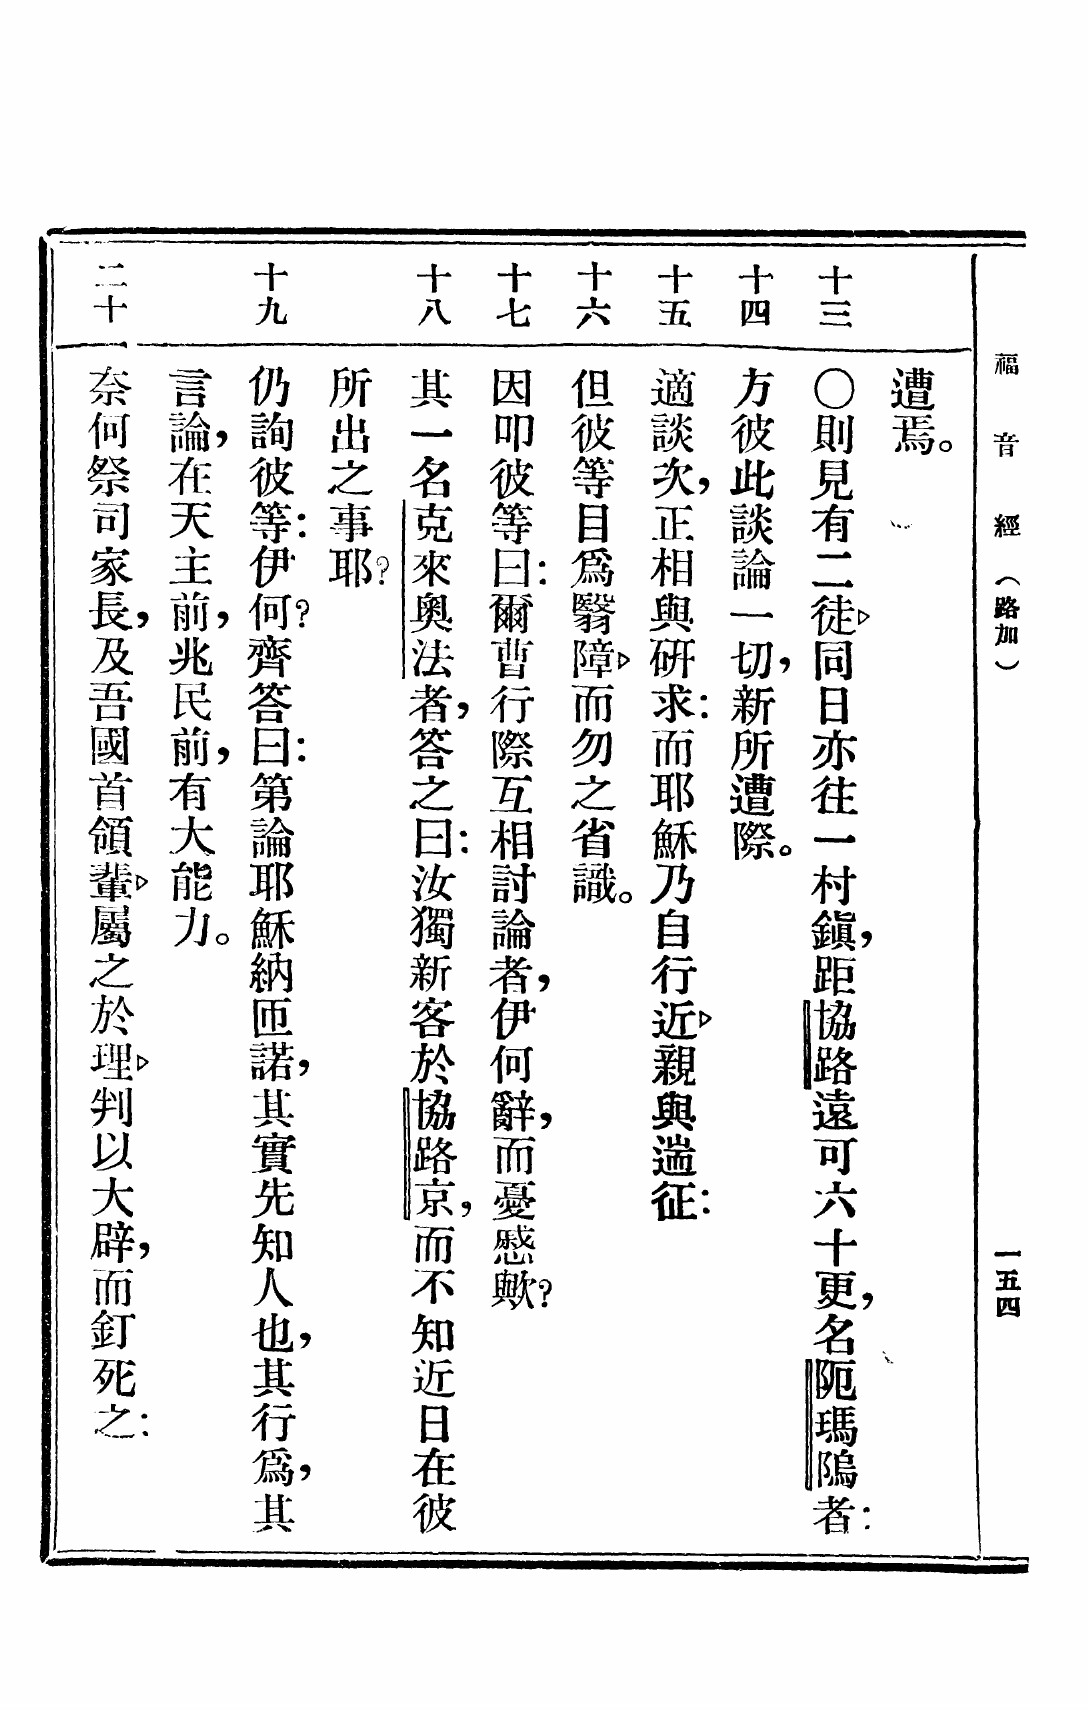 福音經（路加）
一五四
遭焉。
十三
○則見有二徒▷同日亦往一村鎭，距協路遠可六十更，名阨瑪隖者：
十四
方彼此談論一切，新所遭際。
十五
適談次，正相與硏求：而耶穌乃自行近▷親與遄征：
十六
但彼等目爲翳障▷而勿之省識。
十七
因叩彼等曰：爾曹行際互相討論者，伊何辭，而憂慼歟？
十八
其一名克來奧法者，答之曰：汝獨新客於協路京，而不知近日在彼
所出之事耶？
十九
仍詢彼等：伊何？齊答曰：第論耶穌納匝諾，其實先知人也，其行爲，其
言論，在天主前，兆民前，有大能力。
二十
奈何祭司家長，及吾國首領輩▷屬之於理▷判以大辟，而釘死之：